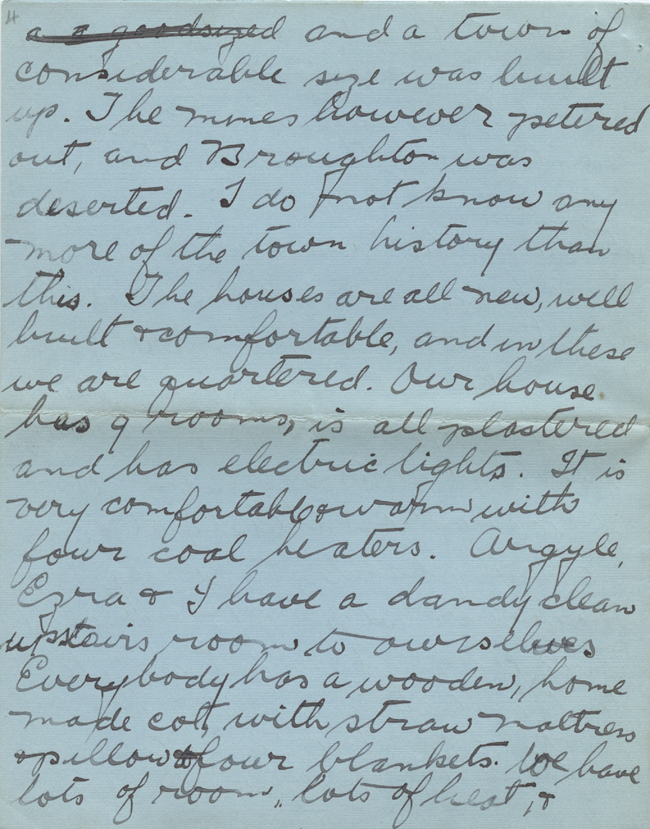 4
a a goodsized and a town of
considerable size was built
up. The mines however petered
out, and Broughton was
deserted. I do not know any
more of the town history than
this. The houses are all new, well
built & comfortable, and in these
we are quartered. Our house
has 9 rooms, is all plastered
and has electric lights. It is
very comfortable & warm with
four coal heaters. Argyle,
Ezra & I have a dandy clean
upstairs room to ourselves
Everybody has a wooden, home
made cot, with straw mattress
& pillow & four blankets. We have
lots of room, lots of heat, &